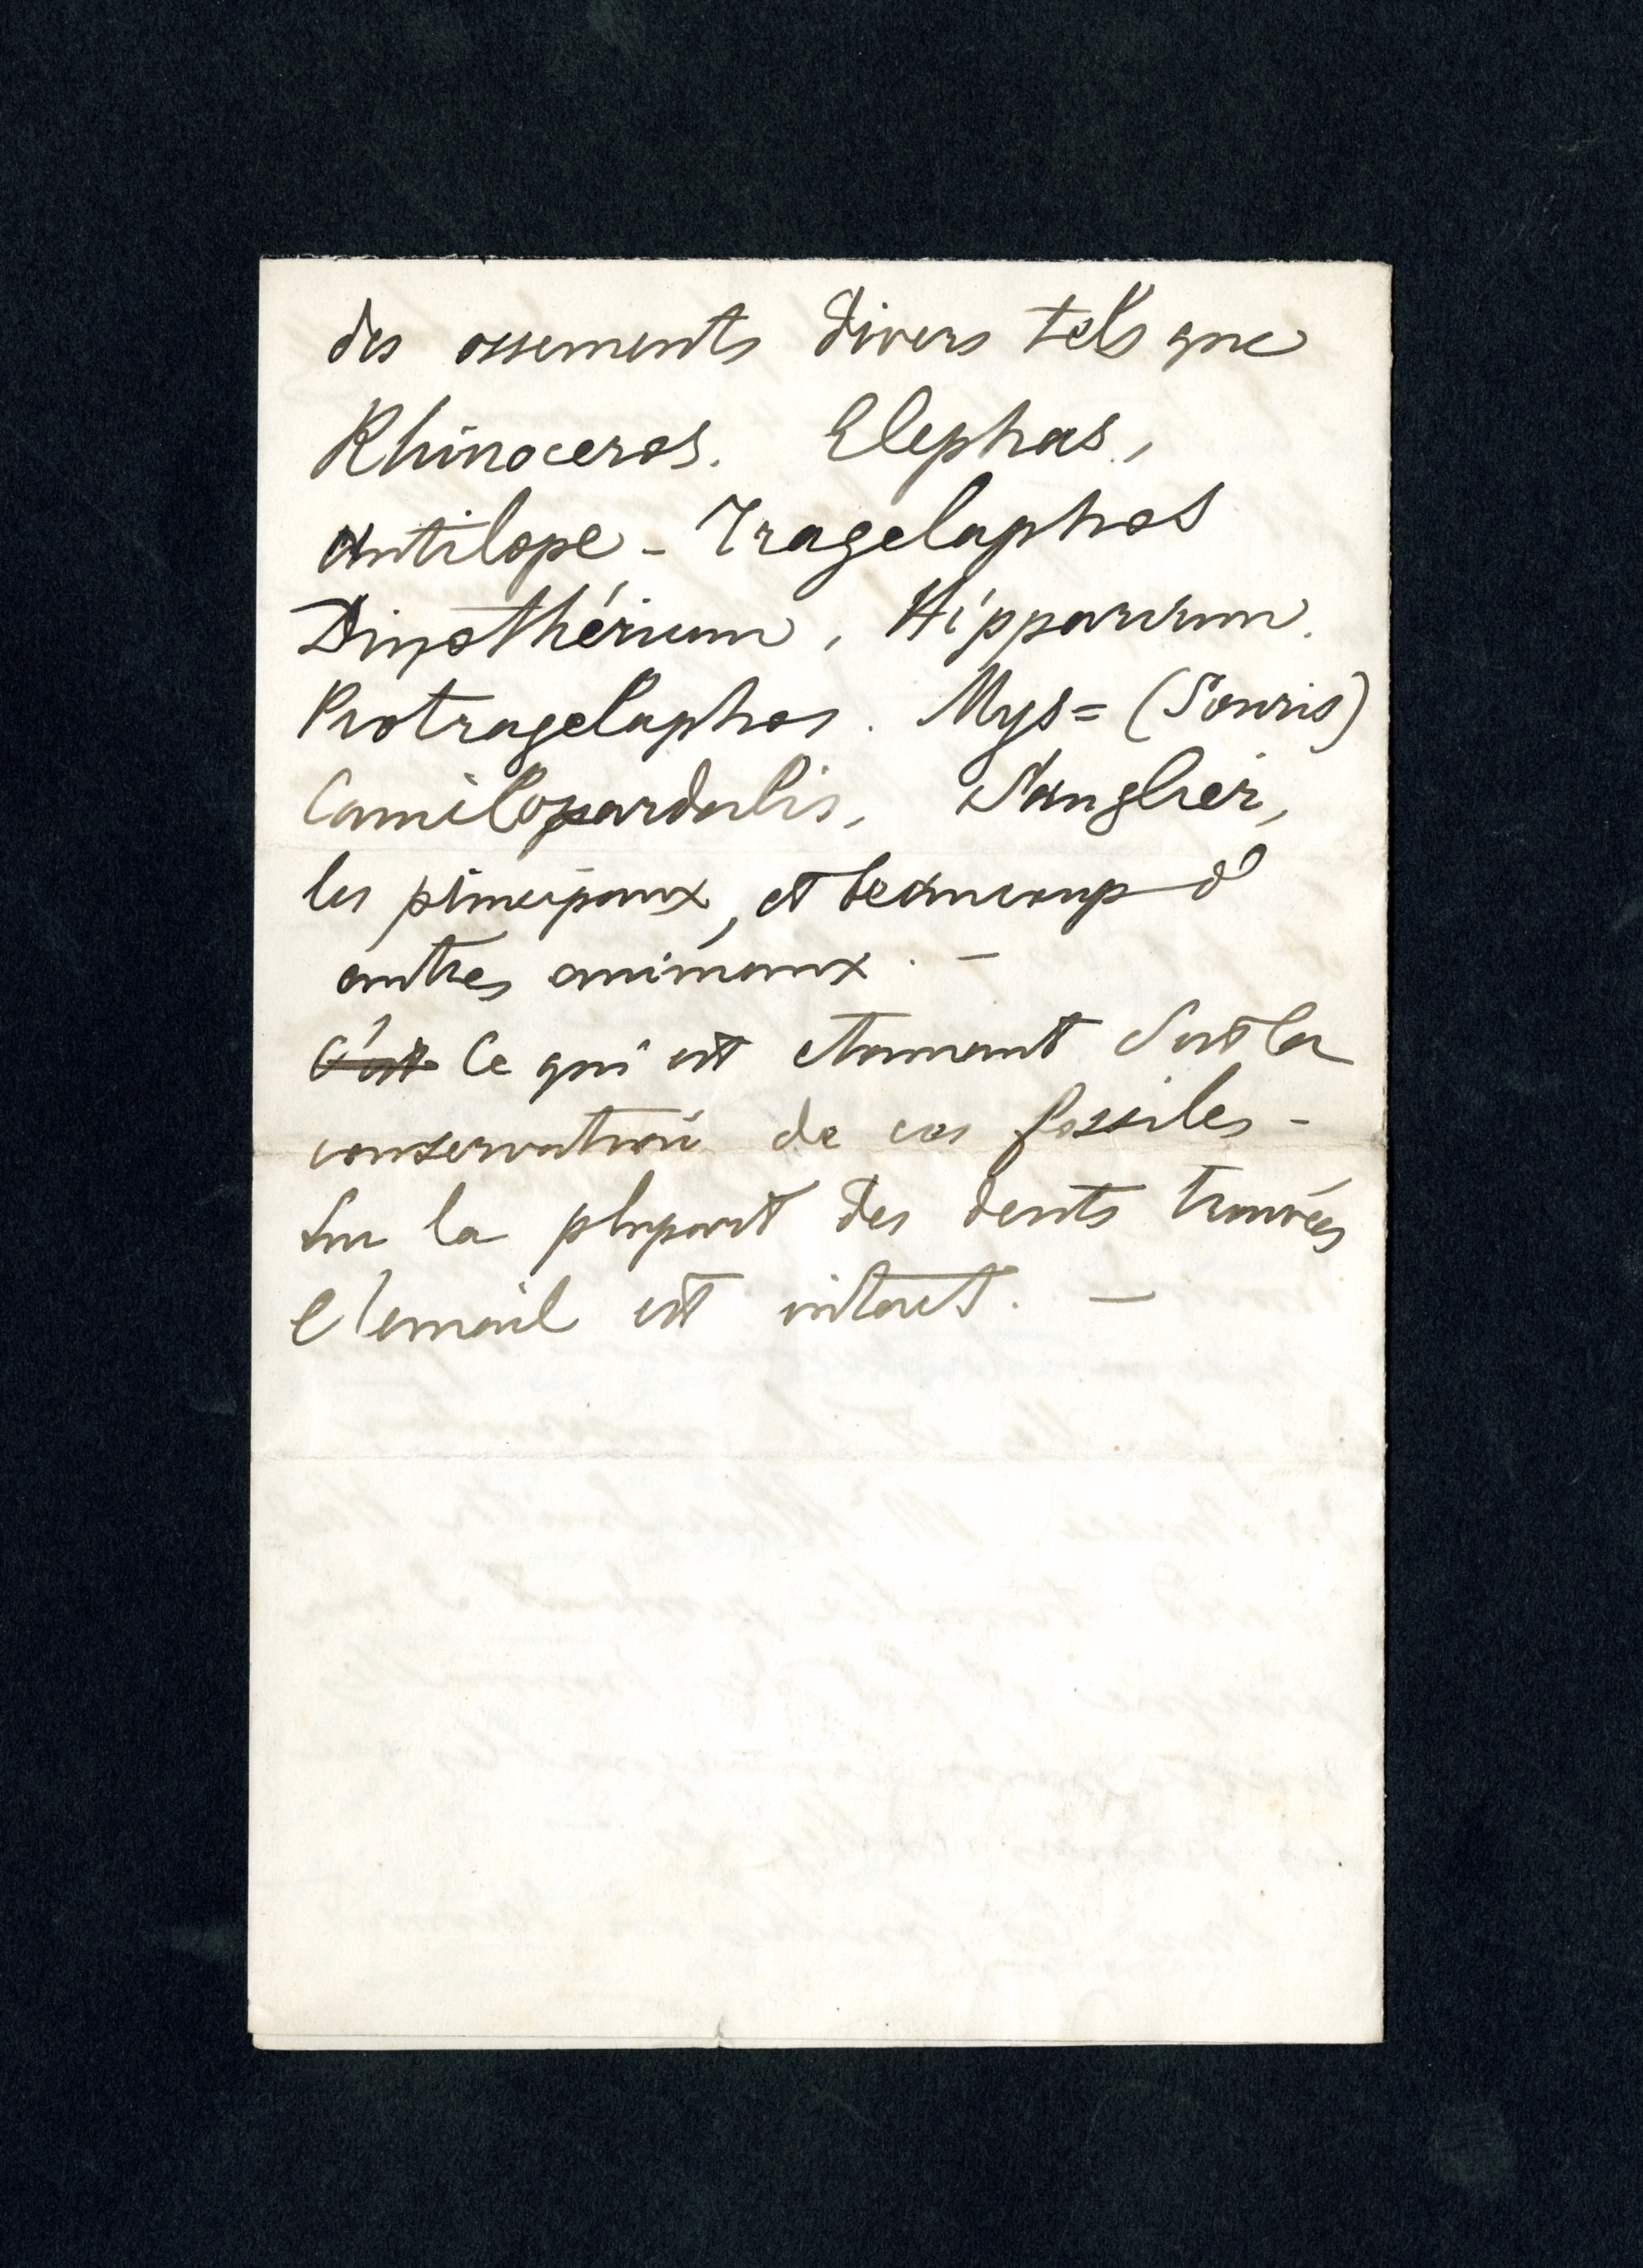 des ossements divers tels que
Rhinoceros. Elephas,
Antilope - Tragelaphos
Dinothérium, Hipparium.
Protragelaphos. Mys = (Souris)
Camilopardalis, Sanglier,
les principaux, et beaucoup d'
autres animaux. —
C'est Ce qui est etonnant c'est la
conservation de ces fossiles -
Sur la plupart des dents trouvées
l'email est intact. —